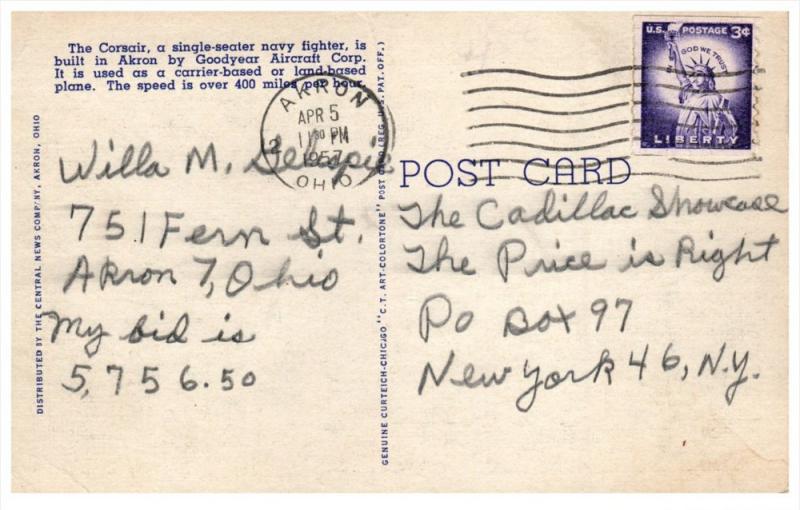 The Corsair, a single-seater navy fighter, is
built in Akron by Goodyear Aircraft Corp.
It is used as a carrier-based or land-based
plane. The speed is over 400 miles per hour.
AKRON
APR 5
11 30 PM
1957
OHIO
2
U.S. POSTAGE 3¢
IN GOD WE TRUST
LIBERTY
DISTRIBUTED BY THE CENTRAL NEWS COMPANY, AKRON, OHIO
Willa M.
751 Fern St.
Akron 7, Ohio
My bid is
5,756.50
GENUINE CURTEICH-CHICAGO "C.T. ART-COLORTONE" POST CARD (REG. U.S. PAT. OFF.)
POST CARD
The Cadillac Showcase
The Price is Right
Po Box 97
New York 46, N.Y.